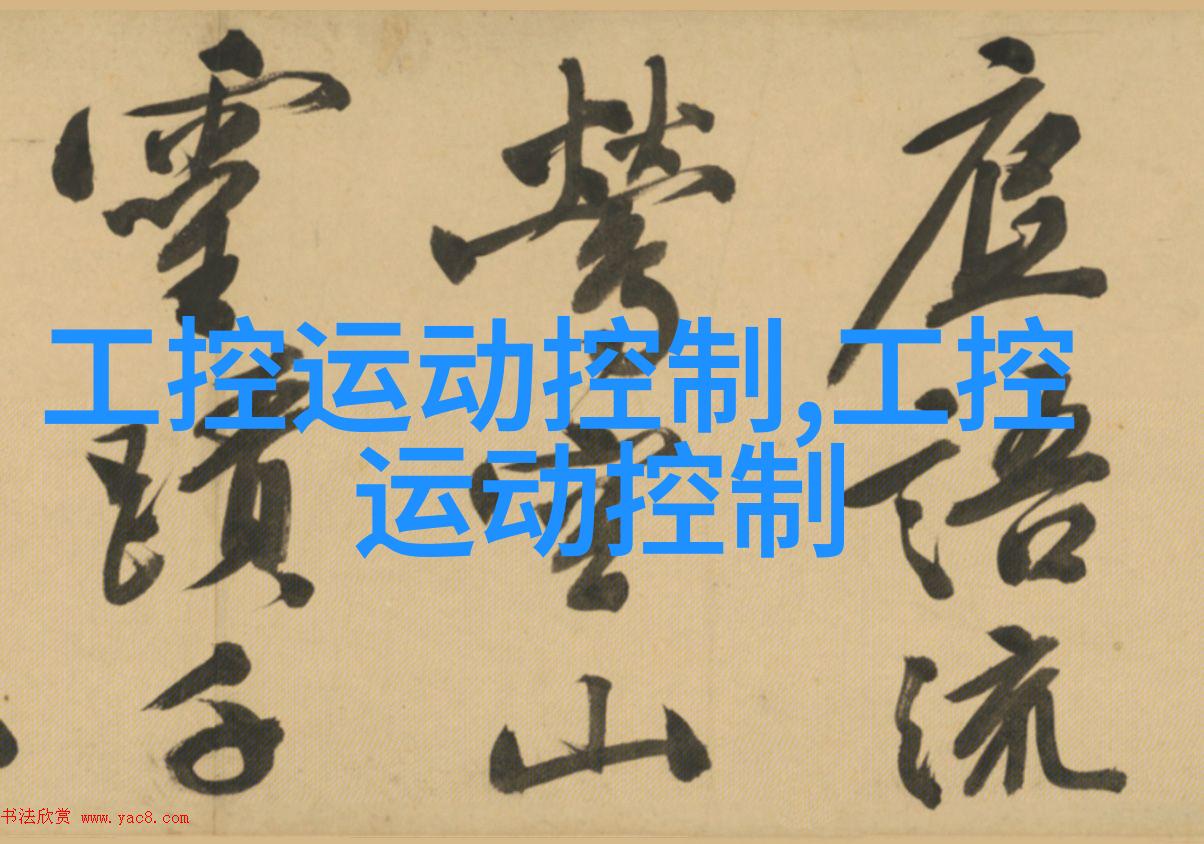 工控运动控制,工控
运动控制
庭語流
山
靈蹟千
书法欣赏 www.yac8.com